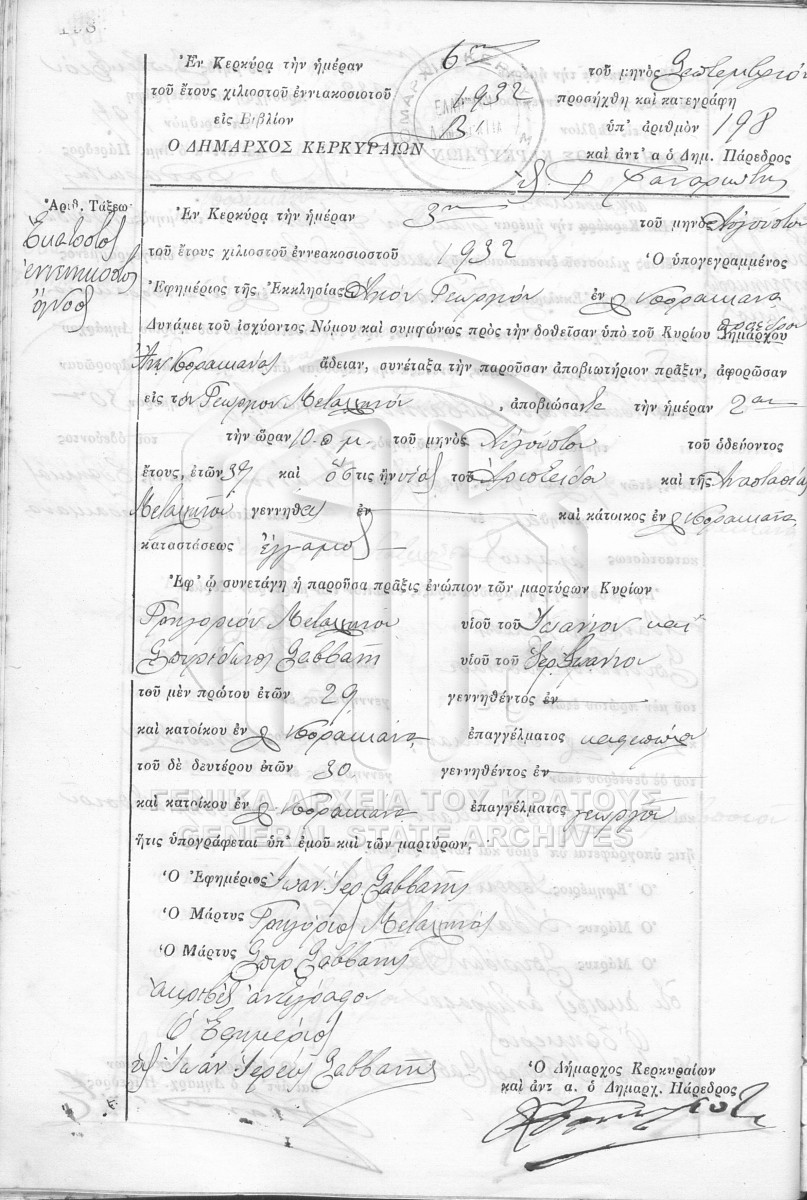 198
Ἐν Κερκύρᾳ τὴν ἡμέραν 6ην τοῦ μηνὸς Σεπτεμβρίου
τοῦ ἔτους χιλιοστοῦ ἐννιακοσιοτοῦ 1932 προσήχθη καὶ κατεγράφη
εἰς Βιβλίον Β1 ὑπ' ἀριθμὸν 198
Ο ΔΗΜΑΡΧΟΣ ΚΕΡΚΥΡΑΙΩΝ καὶ ἀντ' α ὁ Δημ. Πάρεδρος
Ἀριθ. Τάξεω
Ἑκατοστὸς
ἐνενηκοστὸς
ὄγδοος
Ἐν Κερκύρᾳ τὴν ἡμέραν 3ην τοῦ μηνὸς Αὐγούστου
τοῦ ἔτους χιλιοστοῦ ἐννεακοσιοστοῦ 1932 Ὁ ὑπογεγραμμένος
Ἐφημέριος τῆς Ἐκκλησίας Ἁγίου Γεωργίου ἐν Κορακιάνᾳ
Δυνάμει τοῦ ἰσχύοντος Νόμου καὶ συμφώνως πρὸς τὴν δοθεῖσαν ὑπὸ τοῦ Κυρίου Δημάρχου προέδρου
Κορακιάνας ἄδειαν, συνέταξα τὴν παροῦσαν ἀποβιωτήριον πρᾶξιν, ἀφορῶσαν
εἰς τὸν Γεώργιον Μεταλληνόν, ἀποβιώσαντα τὴν ἡμέραν 2αν
τὴν ὥραν 10 π μ. τοῦ μηνὸς Αὐγούστου τοῦ ὁδεύοντος
ἔτους, ἐτῶν 37 καὶ ὅστις ἦν υἱὸς τοῦ Ἀριστείδου καὶ τῆς Ἀναστασίας
Μεταλληνοῦ γεννηθεὶς ἐν καὶ κάτοικος ἐν Κορακιάνᾳ
καταστάσεως ἔγγαμος
Ἐφ' ᾧ συνετάγη ἡ παροῦσα πρᾶξις ἐνώπιον τῶν μαρτύρων Κυρίων
Γρηγορίου Μεταλληνοῦ υἱοῦ τοῦ Ἰωάννου καὶ
Σπυρίδωνος Σαββανῆ υἱοῦ τοῦ Ἱερ. Ἰωάννου
τοῦ μὲν πρώτου ἐτῶν 29 γεννηθέντος ἐν
καὶ κατοίκου ἐν Κορακιάνᾳ ἐπαγγέλματος καφεπώλου
τοῦ δὲ δευτέρου ἐτῶν 30 γεννηθέντος ἐν
καὶ κατοίκου ἐν Κορακιάνᾳ ἐπαγγέλματος γεωργοῦ
ΓΕΝΙΚΑ ΑΡΧΕΙΑ ΤΟΥ ΚΡΑΤΟΥΣ
GENERAL STATE ARCHIVES
ἥτις ὑπογράφεται ὑπ' ἐμοῦ καὶ τῶν μαρτύρων,
Ὁ Ἐφημέριος Ἰωάν Ἱερ. Σαββανῆς
Ὁ Μάρτυς Γρηγόριος Μεταλληνός
Ὁ Μάρτυς Σπυρ Σαββανῆς
ἀκριβὲς ἀντίγραφον
Ὁ Ἐφημέριος
Ἰωάν Ἱερεὺς Σαββανῆς
Ὁ Δήμαρχος Κερκυραίων
καὶ ἀντ α. ὁ Δημαρχ. Πάρεδρος